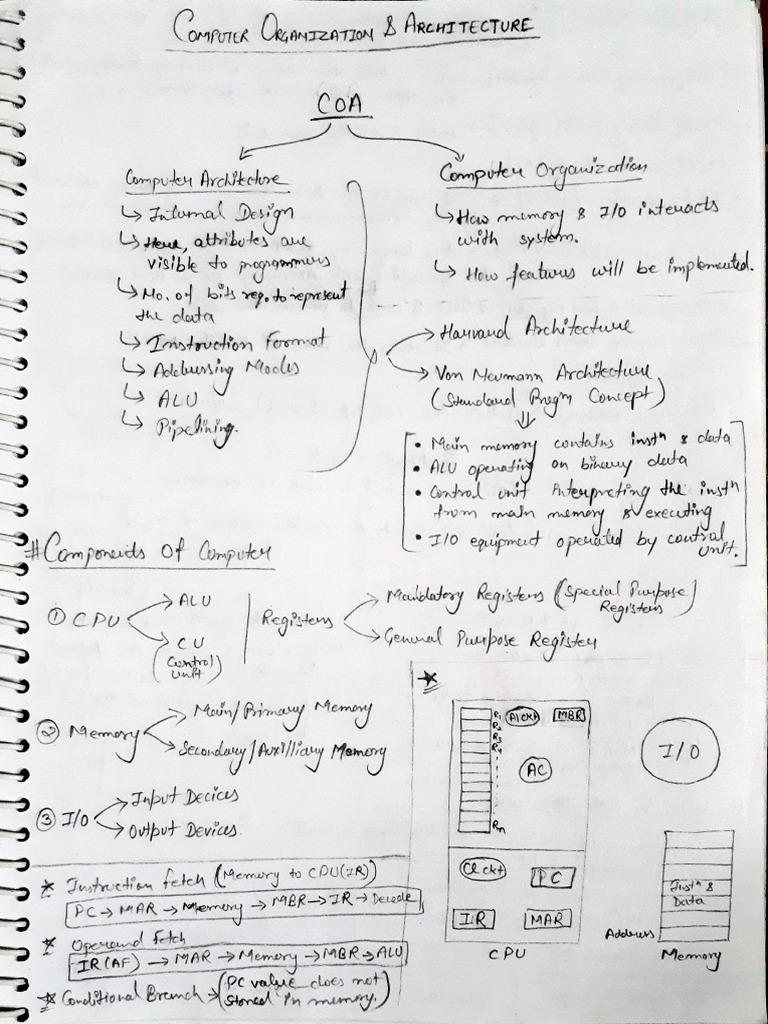 COMPUTER ORGANIZATION & ARCHITECTURE
COA
Computer Architecture
↳ Internal Design
↳ Here, attributes are
visible to programmers
↳ No. of bits req. to represent
the data
↳ Instruction Format
↳ Addressing Modes
↳ ALU
↳ Pipelining.
Computer Organization
↳ How memory & I/O interacts
with system.
↳ How features will be implemented.
Harvard Architecture
Von Neumann Architecture
(Standard Prgm Concept)
• Main memory contains instⁿ & data
• ALU operating on binary data
• Control unit interpreting the instⁿ
from main memory & executing
• I/O equipment operated by control
unit.
# Components Of Computer
① CPU → ALU
→ CU
(Control
unit)
Registers → Mandatory Registers (Special Purpose
Registers)
→ General Purpose Register
② Memory → Main/Primary Memory
→ Secondary/Auxilliary Memory
③ I/O → Input Decices
→ Output Devices.
* Instruction fetch (Memory to CPU(IR))
PC → MAR → Memory → MBR → IR → Decode
* Operand Fetch
IR(AF) → MAR → Memory → MBR → ALU
* Conditional Branch → (PC value does not
stored in memory.)
*
R1
R2
R3
R4
Rn
Alckt
MBR
AC
Clckt
PC
IR
MAR
CPU
I/O
Instⁿ &
Data
Address
Memory